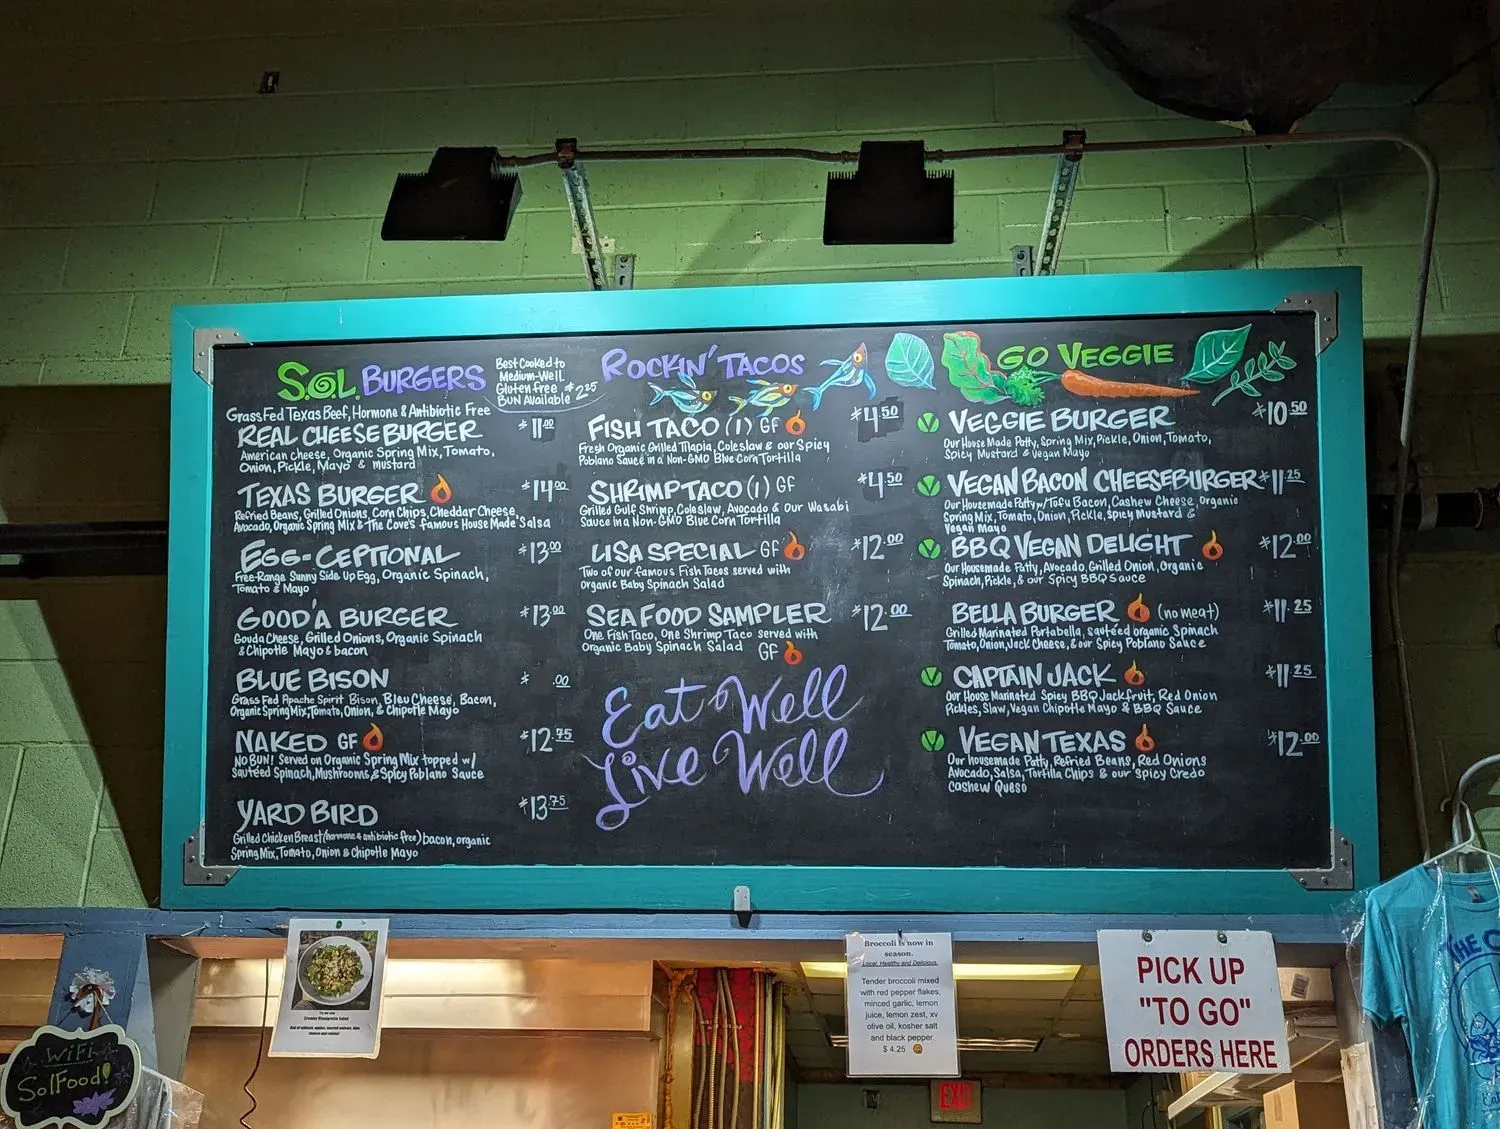 S.O.L. BURGERS
Best Cooked to
Medium-Well
Gluten free $2.25
BUN Available
Grass Fed Texas Beef, Hormone & Antibiotic Free
REAL CHEESEBURGER $11.00
American Cheese, Organic Spring Mix, Tomato,
Onion, Pickle, Mayo & mustard
TEXAS BURGER $14.00
Refried Beans, Grilled Onions, Corn Chips, Cheddar Cheese,
Avocado, Organic Spring Mix & The Cove's famous House Made Salsa
EGG-CEPTIONAL $13.00
Free-Range Sunny Side Up Egg, Organic Spinach,
Tomato & Mayo
GOOD'A BURGER $13.00
Gouda Cheese, Grilled Onions, Organic Spinach
& Chipotle Mayo & bacon
BLUE BISON $ .00
Grass Fed Apache Spirit Bison, Bleu Cheese, Bacon,
Organic Spring Mix, Tomato, Onion, & Chipotle Mayo
NAKED GF $12.75
NO BUN! Served on Organic Spring Mix topped w/
Sautéed Spinach, Mushrooms & Spicy Poblano Sauce
YARD BIRD $13.75
Grilled Chicken Breast (hormone & antibiotic free) bacon, organic
Spring Mix, Tomato, Onion & Chipotle Mayo
ROCKIN' TACOS
FISH TACO (1) GF $4.50
Fresh Organic Grilled Tilapia, Coleslaw & our Spicy
Poblano Sauce in a Non-GMO Blue Corn Tortilla
SHRIMP TACO (1) GF $4.50
Grilled Gulf Shrimp, Coleslaw, Avocado & Our Wasabi
Sauce in a Non-GMO Blue Corn Tortilla
LISA SPECIAL GF $12.00
Two of our famous Fish Tacos served with
Organic Baby Spinach Salad
SEAFOOD SAMPLER $12.00
One Fish Taco, One Shrimp Taco served with
Organic Baby Spinach Salad GF
Eat Well
Live Well
GO VEGGIE
VEGGIE BURGER $10.50
Our House Made Patty, Spring Mix, Pickle, Onion, Tomato,
Spicy Mustard & Vegan Mayo
VEGAN BACON CHEESEBURGER $11.25
Our Housemade Patty w/Tofu Bacon, Cashew Cheese, Organic
Spring Mix, Tomato, Onion, Pickle, Spicy Mustard &
Vegan Mayo
BBQ VEGAN DELIGHT $12.00
Our Housemade Patty, Avocado, Grilled Onion, Organic
Spinach, Pickle, & our Spicy BBQ Sauce
BELLA BURGER (no meat) $11.25
Grilled Marinated Portabella, sautéed organic Spinach
Tomato, Onion, Jack Cheese, & our Spicy Poblano Sauce
CAPTAIN JACK $11.25
Our House Marinated Spicy BBQ Jackfruit, Red Onion
Pickles, Slaw, Vegan Chipotle Mayo & BBQ Sauce
VEGAN TEXAS $12.00
Our housemade Patty, Refried Beans, Red Onions
Avocado, Salsa, Tortilla Chips & our Spicy Credo
Cashew Queso
Broccoli is now in
season.
Local, Healthy and Delicious.
Tender broccoli mixed
with red pepper flakes,
minced garlic, lemon
juice, lemon zest, xv
olive oil, kosher salt
and black pepper.
$ 4.25
PICK UP
"TO GO"
ORDERS HERE
WiFi
SolFood!
EXIT
THE